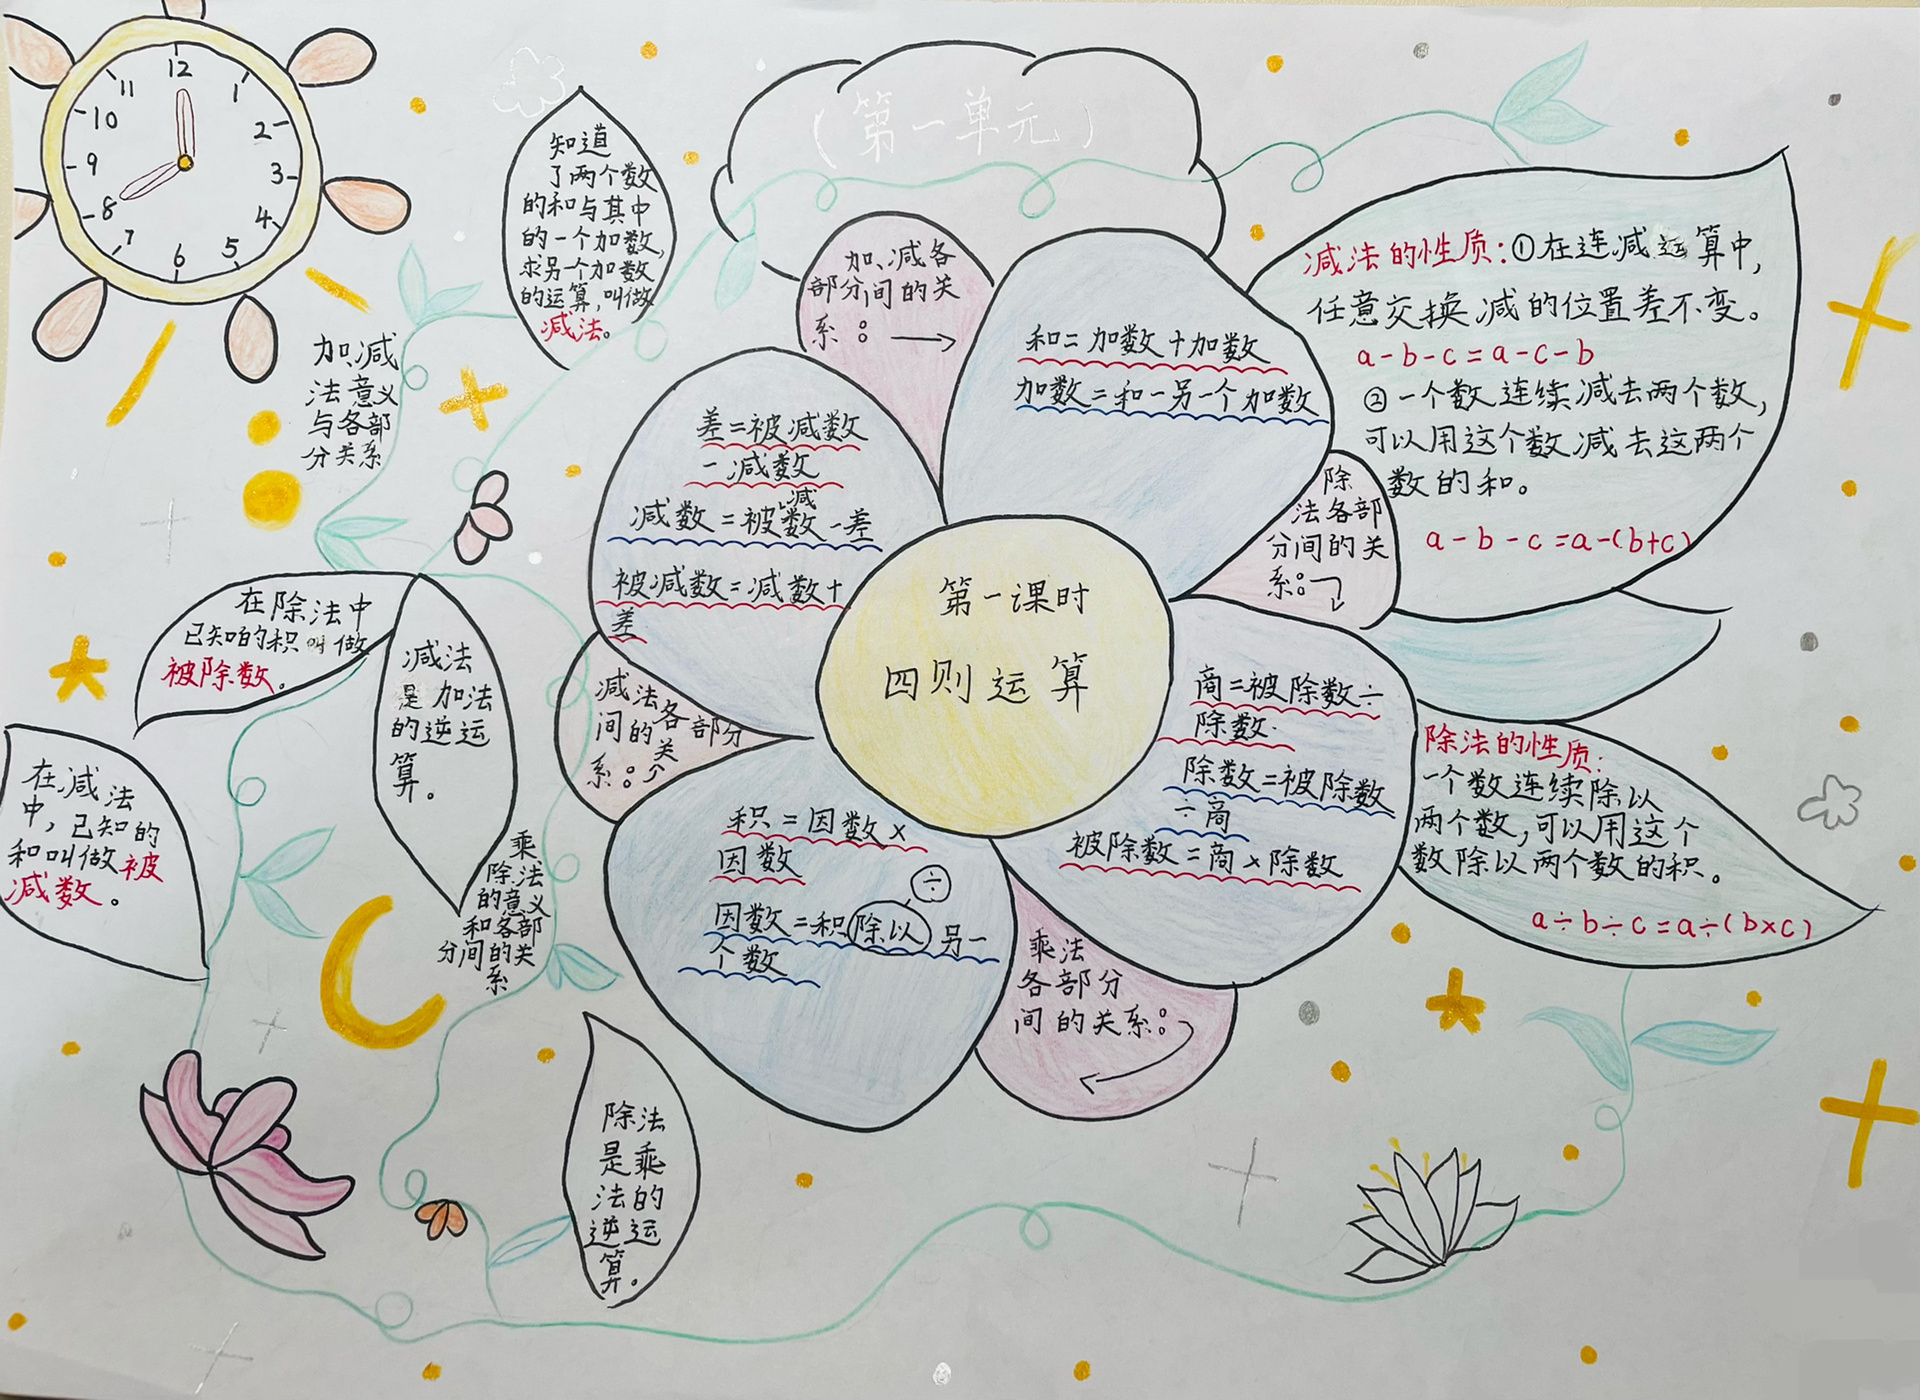 (第一单元)
12
1
2
3
4
5
6
7
8
9
10
11
知道
了两个数
的和与其中
的一个加数,
求另一个加数
的运算,叫做
减法。
加、减
法意义
与各部
分关系
加、减各
部分间的关
系:→
和=加数+加数
加数=和-另一个加数
减法的性质:①在连减运算中,
任意交换减的位置差不变。
a-b-c=a-c-b
②一个数连续减去两个数,
可以用这个数减去这两个
数的和。
a-b-c=a-(b+c)
差=被减数
-减数
减数=被减数-差
被减数=减数+
差
除
法各部
分间的关
系:
第一课时
四则运算
在除法中
已知的积叫做
被除数。
减法
是加法
的逆运
算。
减法各部分
间的关
系:
商=被除数÷
除数
除数=被除数
÷商
被除数=商×除数
除法的性质:
一个数连续除以
两个数,可以用这个
数除以两个数的积。
a÷b÷c=a÷(b×c)
在减法
中,已知的
和叫做被
减数。
乘
除法
的意义
和各部
分间的关
系
积=因数×
因数
÷
因数=积除以另一
个数
乘法
各部分
间的关系:
除法
是乘
法的
逆运
算。